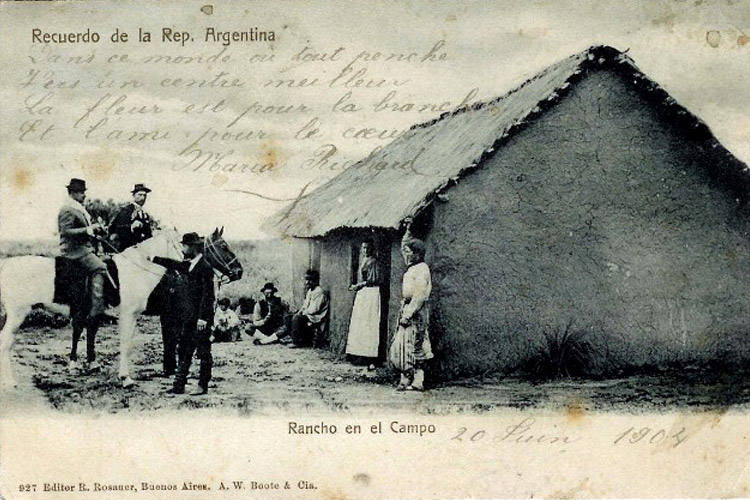 Recuerdo de la Rep. Argentina
Dans ce monde ou tout penche
Vers un centre meilleur
La fleur est pour la branche
Et l'ami pour le cœur
Maria Richard
Rancho en el Campo
20 Juin 1904
927 Editor R. Rosauer, Buenos Aires. A. W. Boote & Cia.